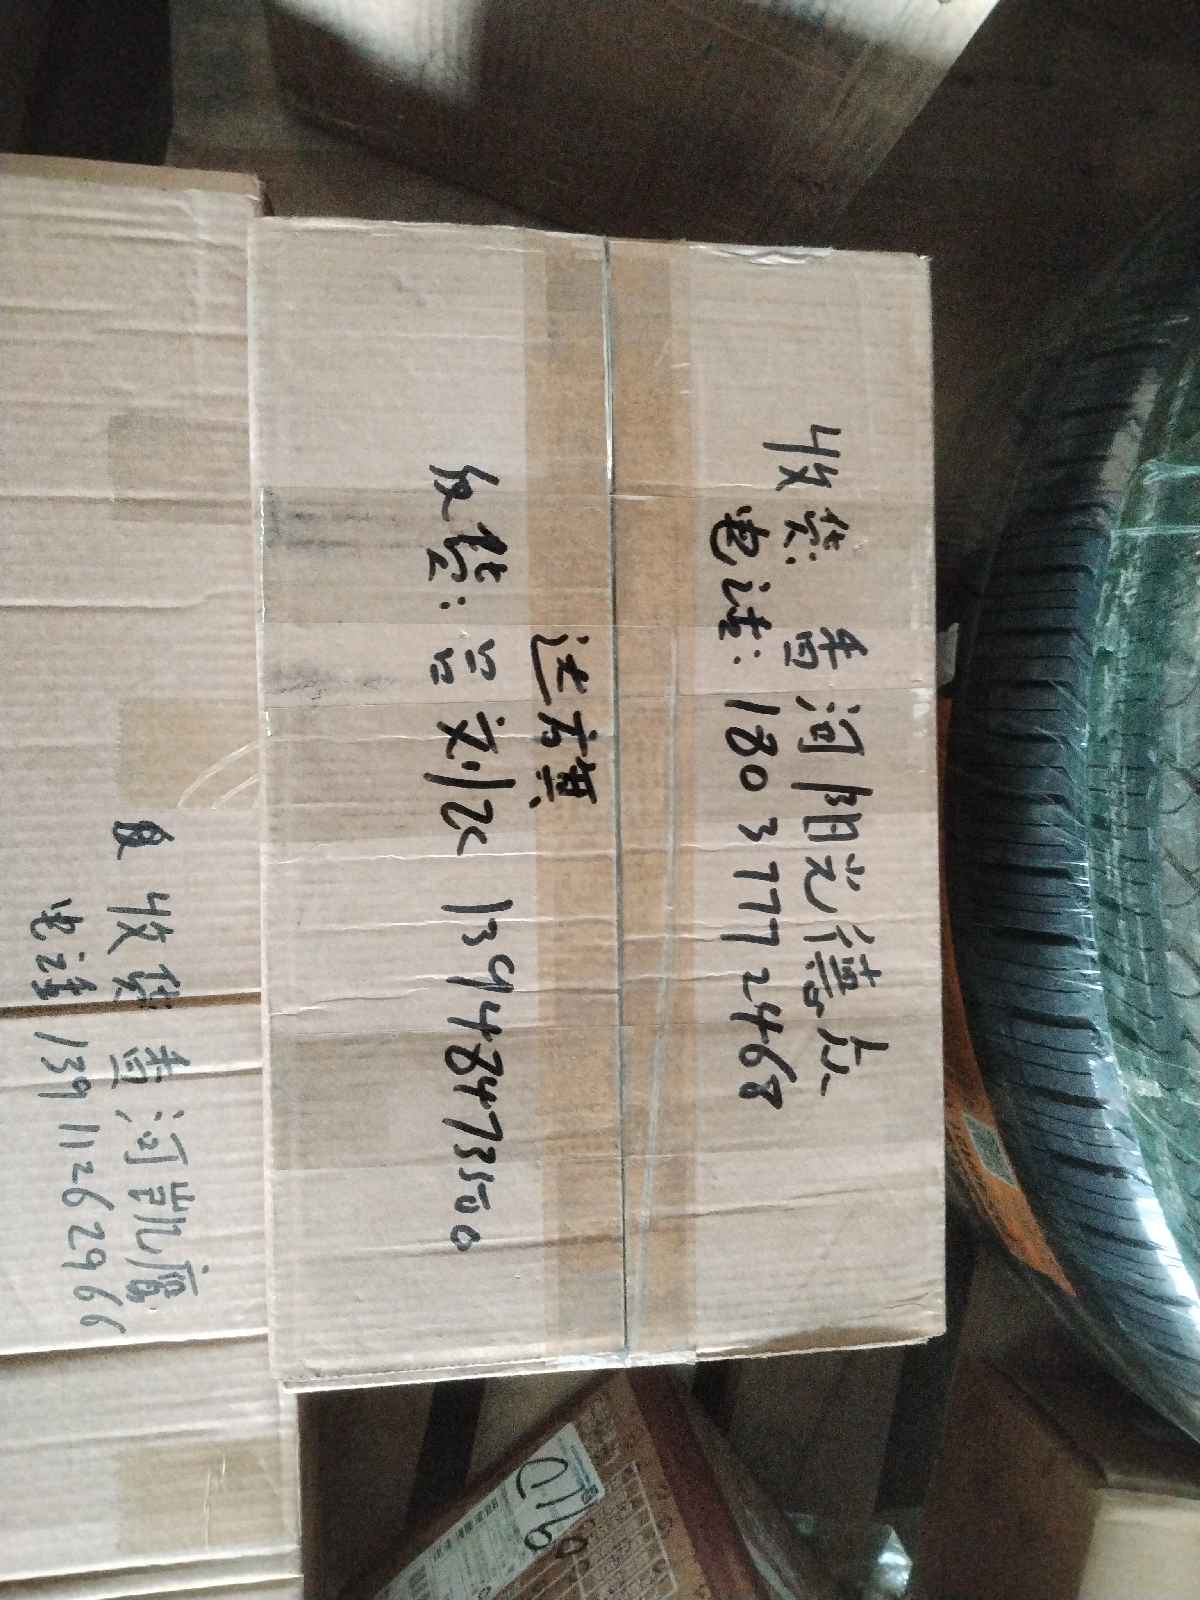 收货: 香河阳光德众
电话: 18037772468
送方黄
发货: 吕 刘江 13948473500
收货 香河凯
电话 13911262966